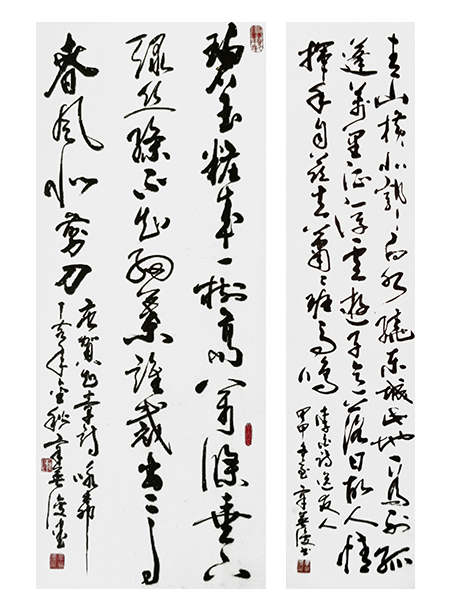 青山横北郭白水繞東城此地一为别孤
蓬萬里征浮雲遊子意落日故人情
揮手自茲去蕭々班馬鳴
李白诗送友人
甲申年
碧玉粧成一樹高万條垂下
绿丝絛不知細葉誰裁出二月
春風似剪刀
唐賀知章詩咏柳
丁亥年金秋